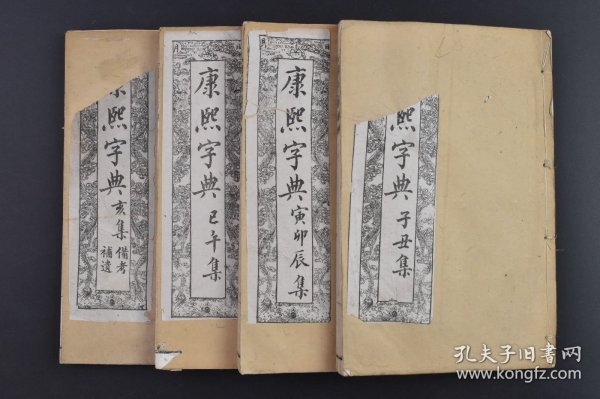 熙字典子丑集
康熙字典寅卯辰集
康熙字典巳午集
康熙字典亥集備考補遺
孔夫子旧書网
www.kongfz.com